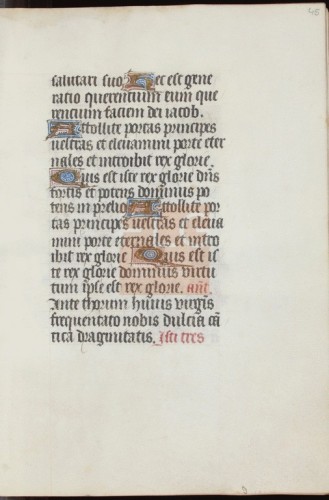 45
salutari suo Hec est gene
ratio querentium eum que
rentium faciem dei iacob.
Attollite portas principes
vestras et elevamini porte eter
nales et introibit rex glorie.
Quis est iste rex glorie dn̄s
fortis et potens dominus po
tens in prelio Attollite por
tas principes vestras et eleva
mini porte eternales et intro
ibit rex glorie Quis est is
te rex glorie dominus virtu
tum ipse est rex glorie. añt.
Ante thorum huius virgīs
frequentate nobis dulcia cā
tica dragmatis. Isti tres